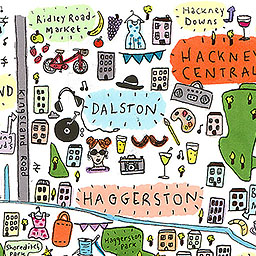 Ridley Road
Market
Hackney
Downs
HACKNEY
CENTRAL
ND
Kingsland Road
DALSTON
HAGGERSTON
Shoreditch
Park
Haggerston
Park